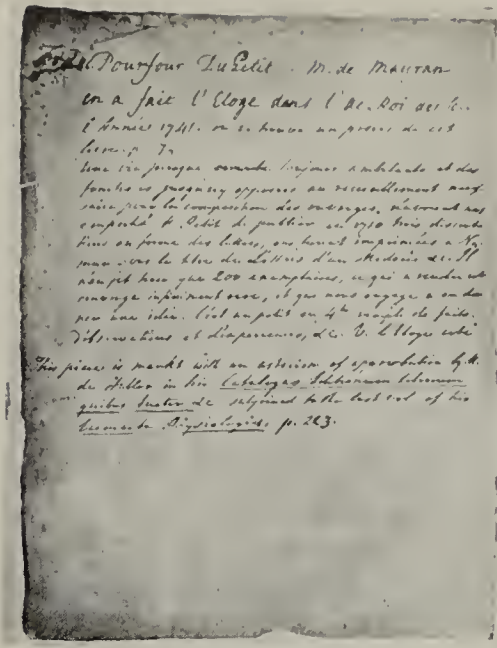 Pourfour Du Petit. M. de Mairan
en a fait l'Eloge dans l'Ac. Roi des Sc.
l'Année 1741. on se trouve un précis de cet
livre p. 7.
Une vie presque errante toujours ambulante et des
fonctions presque opposées au recueillement nécessaire
pour la composition des ouvrages, n'avoient pas
empeché M. Petit de publier en 1710 trois dissertations
en forme des lettres, qui furent imprimées a Namur
sous le titre de Lettres d'un Medecin &c. Il
n'en fit tirer que 200 exemplaires, ce qui a rendu cet
ouvrage infiniment rare, et que nous engage a en donner
une idée. C'est un petit in 4to rempli de faits,
d'observations et d'experiences, &c. V. l'Eloge cité
This piece is markt with an asterism of approbation by M.
de Haller in his Catalogus
quibus &c subjoined to the last vol of his
Elementa Physiologiae p. 223.